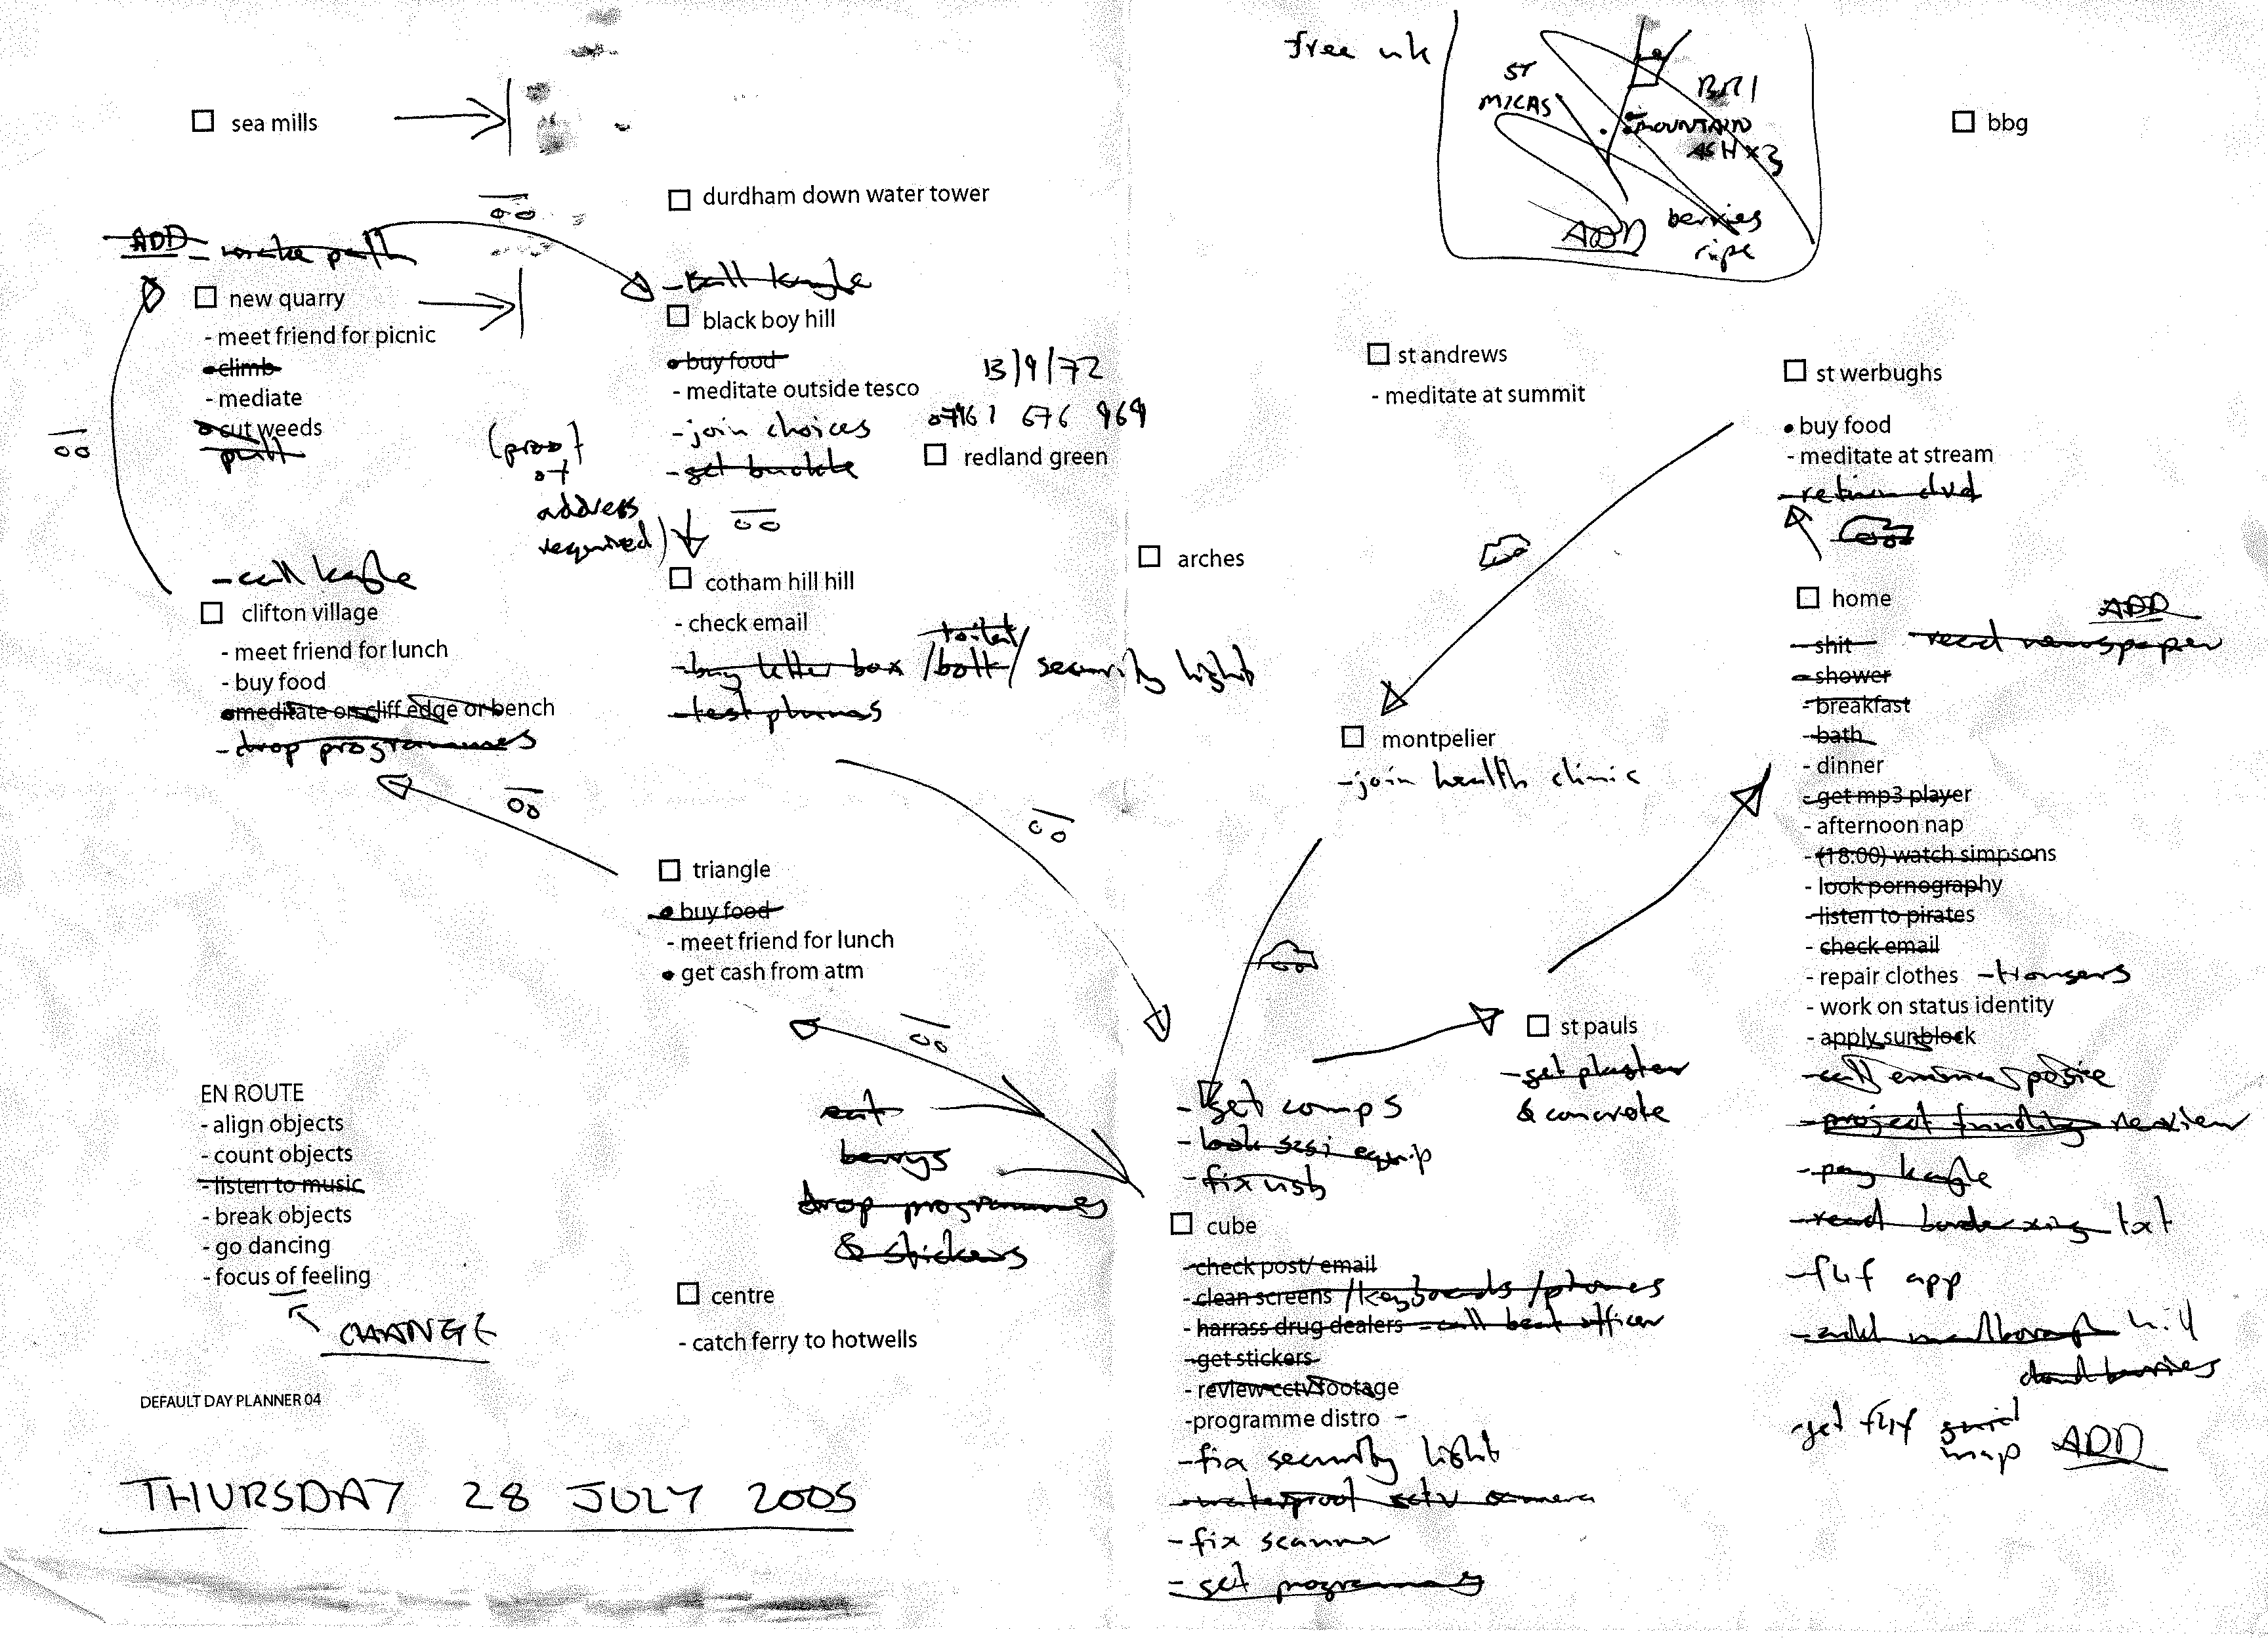 free uk
ST
MICAS
BRI
MOUNTAIN
ASH x3
ADD
berries
ripe
sea mills
bbg
durdham down water tower
ADD - make path
new quarry
- meet friend for picnic
climb
- mediate
cut weeds
- call kayle
black boy hill
buy food
- meditate outside tesco
- join choices
- get buckle
13/9/72
07961 676 969
redland green
(proof
of
address
required)
st andrews
- meditate at summit
st werbughs
buy food
- meditate at stream
- return dvd
- call kayle
clifton village
- meet friend for lunch
- buy food
meditate on cliff edge or bench
- drop programmes
cotham hill hill
- check email
toilet/
- buy letter box /bolt/ security light
- test phones
arches
montpelier
- join health clinic
home
- shit
ADD
read newspaper
- shower
- breakfast
- bath
- dinner
- get mp3 player
- afternoon nap
- (18:00) watch simpsons
- look pornography
- listen to pirates
- check email
- repair clothes - trousers
- work on status identity
- apply sunblock
- call emma
- project funding review
- pay kayle
- read border xing txt
- f4f app
- add hill
berries
- get f4f
map
ADD
triangle
buy food
- meet friend for lunch
get cash from atm
st pauls
- get plaster
& concrete
eat
berrys
drop programmes
& stickers
centre
- catch ferry to hotwells
- get comps
- look scsi equip
- fix usb
cube
- check post/ email
- clean screens /keyboards /phones
- harrass drug dealers - call beat officer
- get stickers
- review cctv footage
-programme distro -
- fix security light
- waterproof cctv camera
- fix scanner
- get programmes
EN ROUTE
- align objects
- count objects
- listen to music
- break objects
- go dancing
- focus of feeling
CHANGE
DEFAULT DAY PLANNER 04
THURSDAY 28 JULY 2005